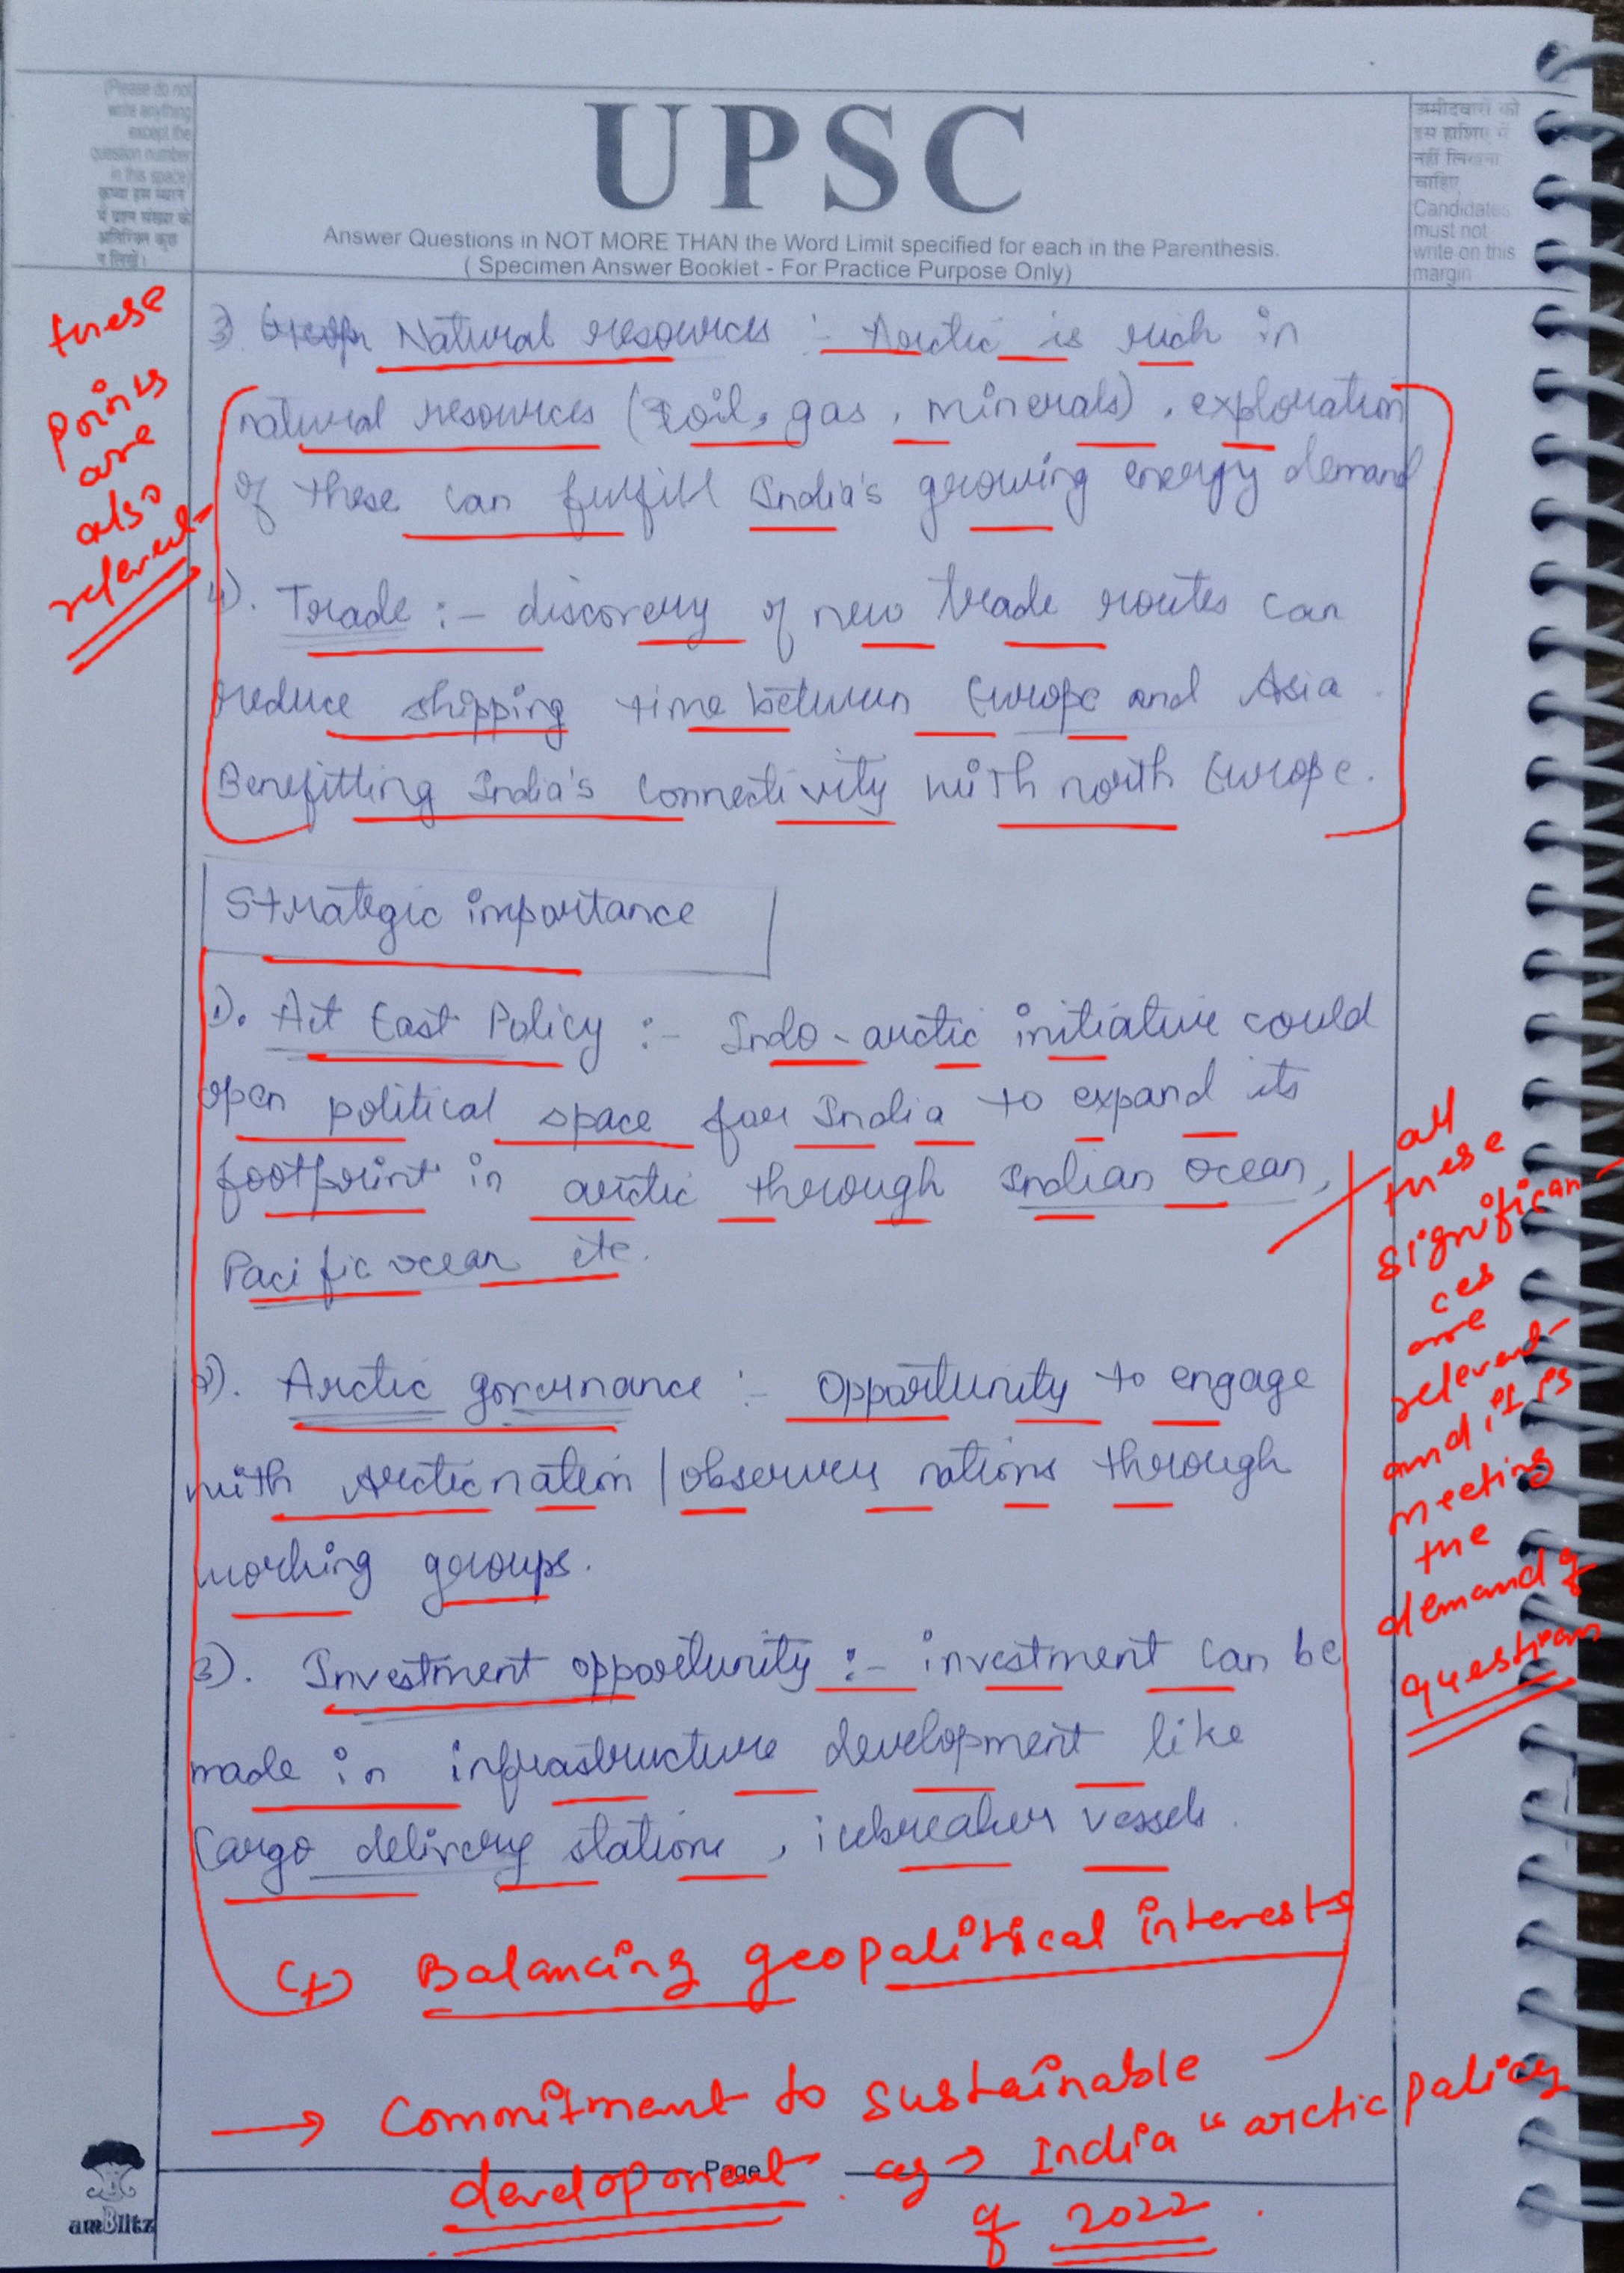 (Please do not
write anything
except the
question number
in this space)
कृपया इस स्थान
में प्रश्न संख्या के
अतिरिक्त कुछ
न लिखें।
UPSC
Answer Questions in NOT MORE THAN the Word Limit specified for each in the Parenthesis.
( Specimen Answer Booklet - For Practice Purpose Only)
उम्मीदवारों को
इस हाशिए में
नहीं लिखना
चाहिए
Candidates
must not
write on this
margin
these
points
are
also
relevent
3) Natural resources :- Arctic is rich in
natural resources (oil, gas, minerals). exploration
of these can fulfill India's growing energy demand
4). Trade :- discovery of new trade routes can
reduce shipping time between Europe and Asia.
Benefitting India's connectivity with north Europe.
Strategic importance
1). Act East Policy :- Indo-arctic initiative could
open political space for India to expand its
footprint in arctic through Indian ocean,
Pacific ocean etc.
2). Arctic governance :- Opportunity to engage
with Arctic nation / observer nations through
working groups.
3). Investment opportunity :- investment can be
made in infrastructure development like
Cargo delivery stations, icebreaker vessels.
all
these
significan-
ces
are
relevent
and it is
meeting
the
demand of
question
(+) Balancing geopolitical interests
→ Commitment to sustainable
development. eg → India "arctic policy
of 2022.
Page
amBlitz